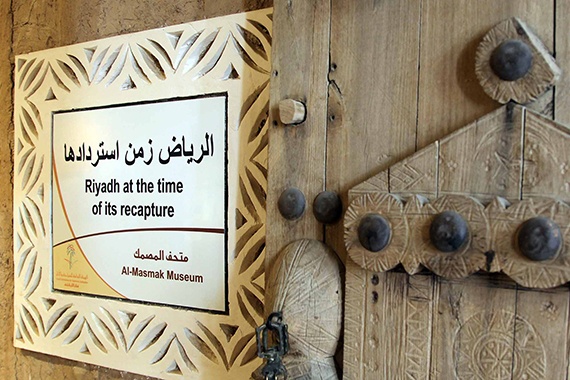 الرياض زمن استردادها
Riyadh at the time
of its recapture
متحف المصمك
Al-Masmak Museum